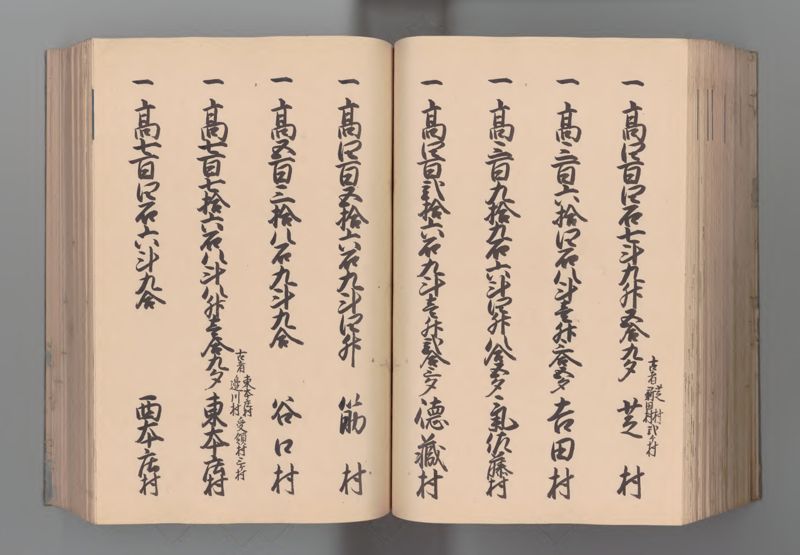 一 高四百四石七斗九升五合九夕 芝村
古者 芝村 新田村 弐ヶ村
一 高三百六拾四石八斗壱升六合五夕 吉田村
一 高三百九拾九石六斗四升八合五夕 気佐藤村
一 高四百弐拾六石九斗壱升弐合三夕 徳蔵村
一 高四百五拾六石九斗四升 筋村
一 高五百三拾八石九斗九合 谷口村
一 高七百七拾六石八斗八升壱合九夕 東本庄村
古者 東本庄村 邉川村 受領村 三ヶ村
一 高七百四石六斗九合 西本庄村